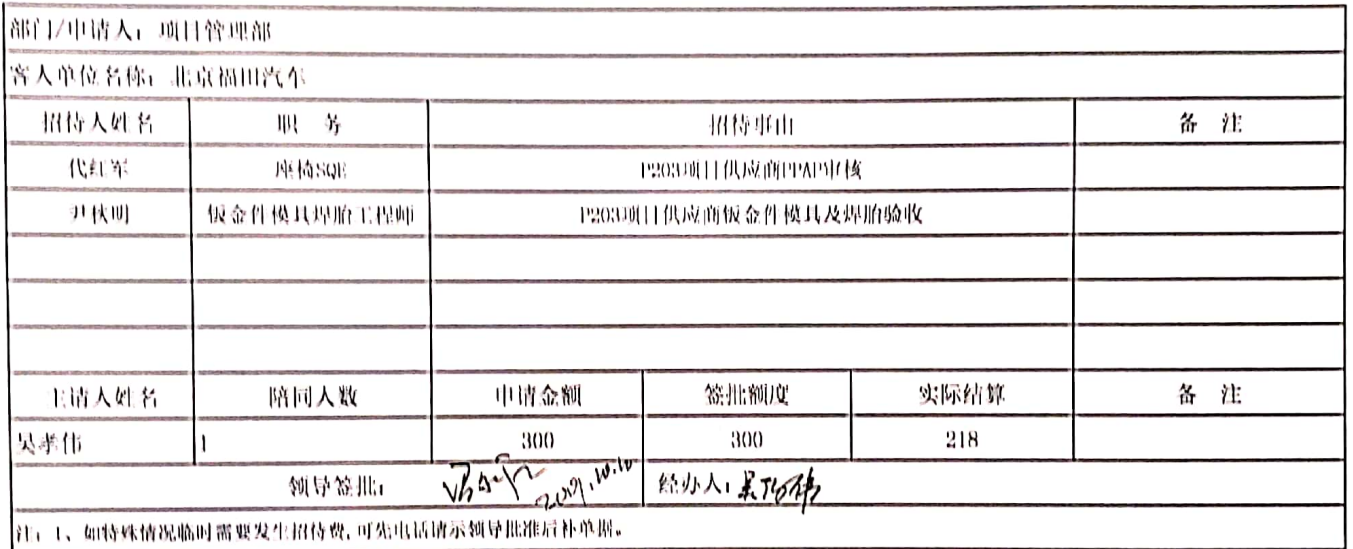 部门/申请人：项目管理部
客人单位名称：北京福田汽车
招待人姓名 职 务 招待事由 备 注
代红军 座椅SQE P203项目供应商PPAP审核
尹秋明 钣金件模具焊胎工程师 P203项目供应商钣金件模具及焊胎验收
主请人姓名 陪同人数 申请金额 签批额度 实际结算 备 注
吴孝伟 1 300 300 218
领导签批： 2019.10.10 经办人：吴孝伟
注：1、如特殊情况临时需要发生招待费,可先电话请示领导批准后补单据。